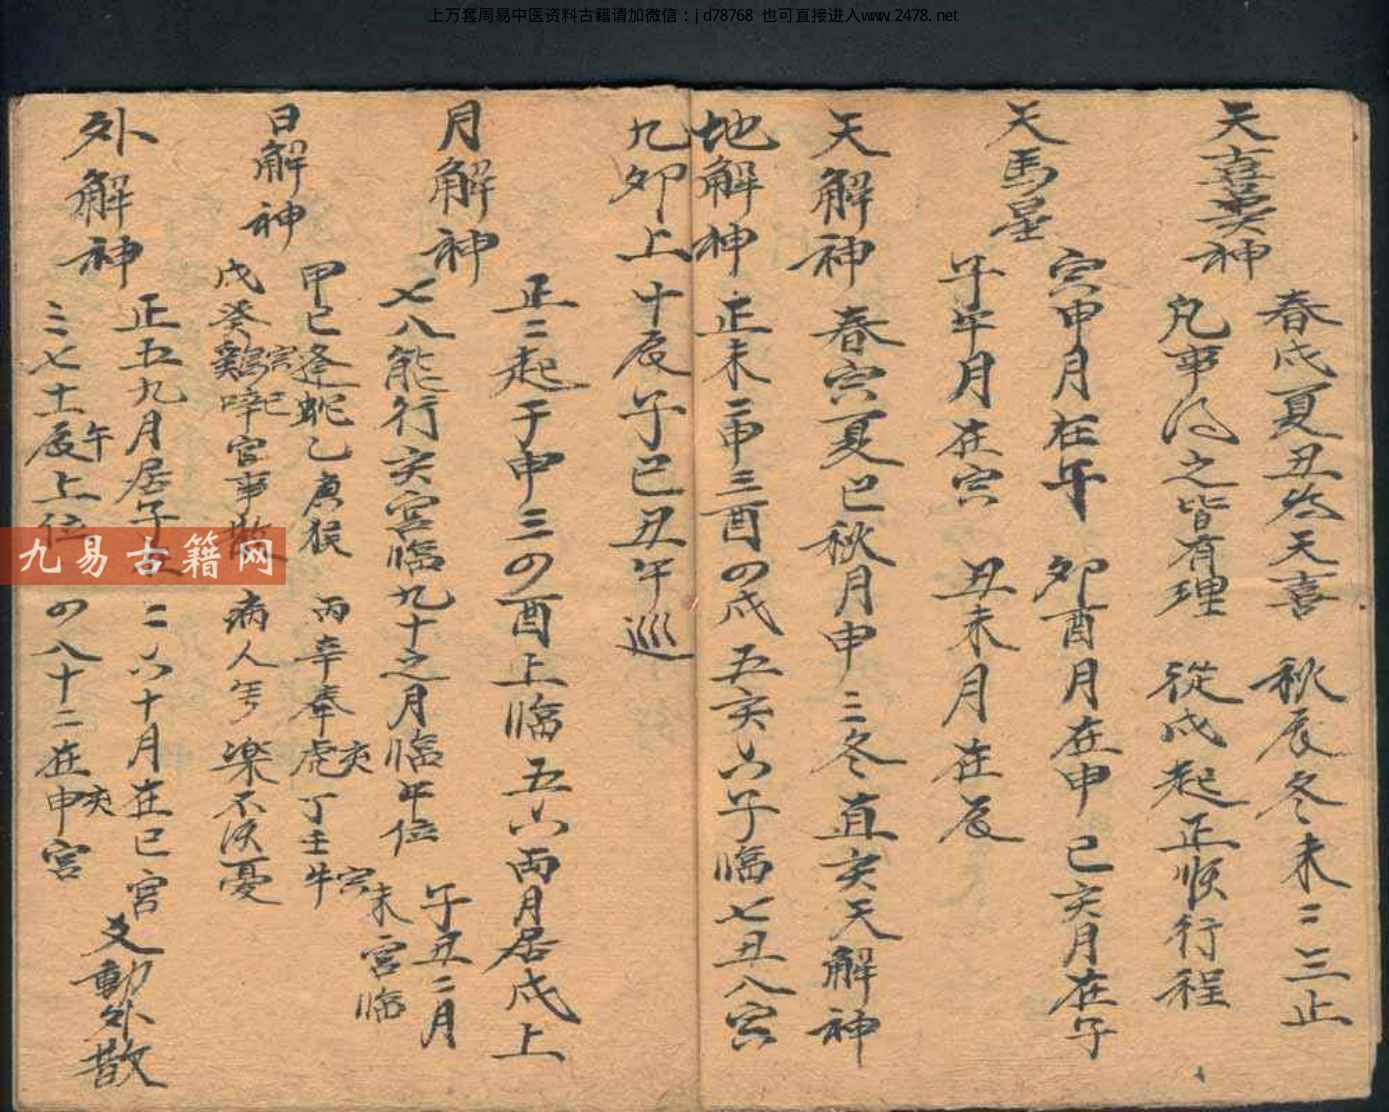 上万套周易中医资料古籍请加微信：jd78768 也可直接进入www.2478.net
天喜神
春戌夏丑為天喜 秋辰冬未二三止
凡事得之皆有理 從戌起正順行程
天馬星
寅申月在午 卯酉月在申 巳亥月在子
子午月在寅 丑未月在辰
天解神 春寅夏巳秋月申 三冬直亥天解神
地解神 正未二申三酉四戌五亥六子臨七丑八寅
九卯上十辰子巳丑午巡
月解神
正二起于申三四酉上臨五六兩月居戌上
七八能行亥宮臨九十之月臨午位 子丑二月
未宮臨
日解神
甲已逢蛇乙庚猴 丙辛奉虎亥丁壬牛宮
戊癸鷄啼官事散 病人安樂不須憂
外解神
正五九月居子 二六十月在巳宮
三七十一辰午上位 四八十二在申亥宮
爻動外散
九易古籍网